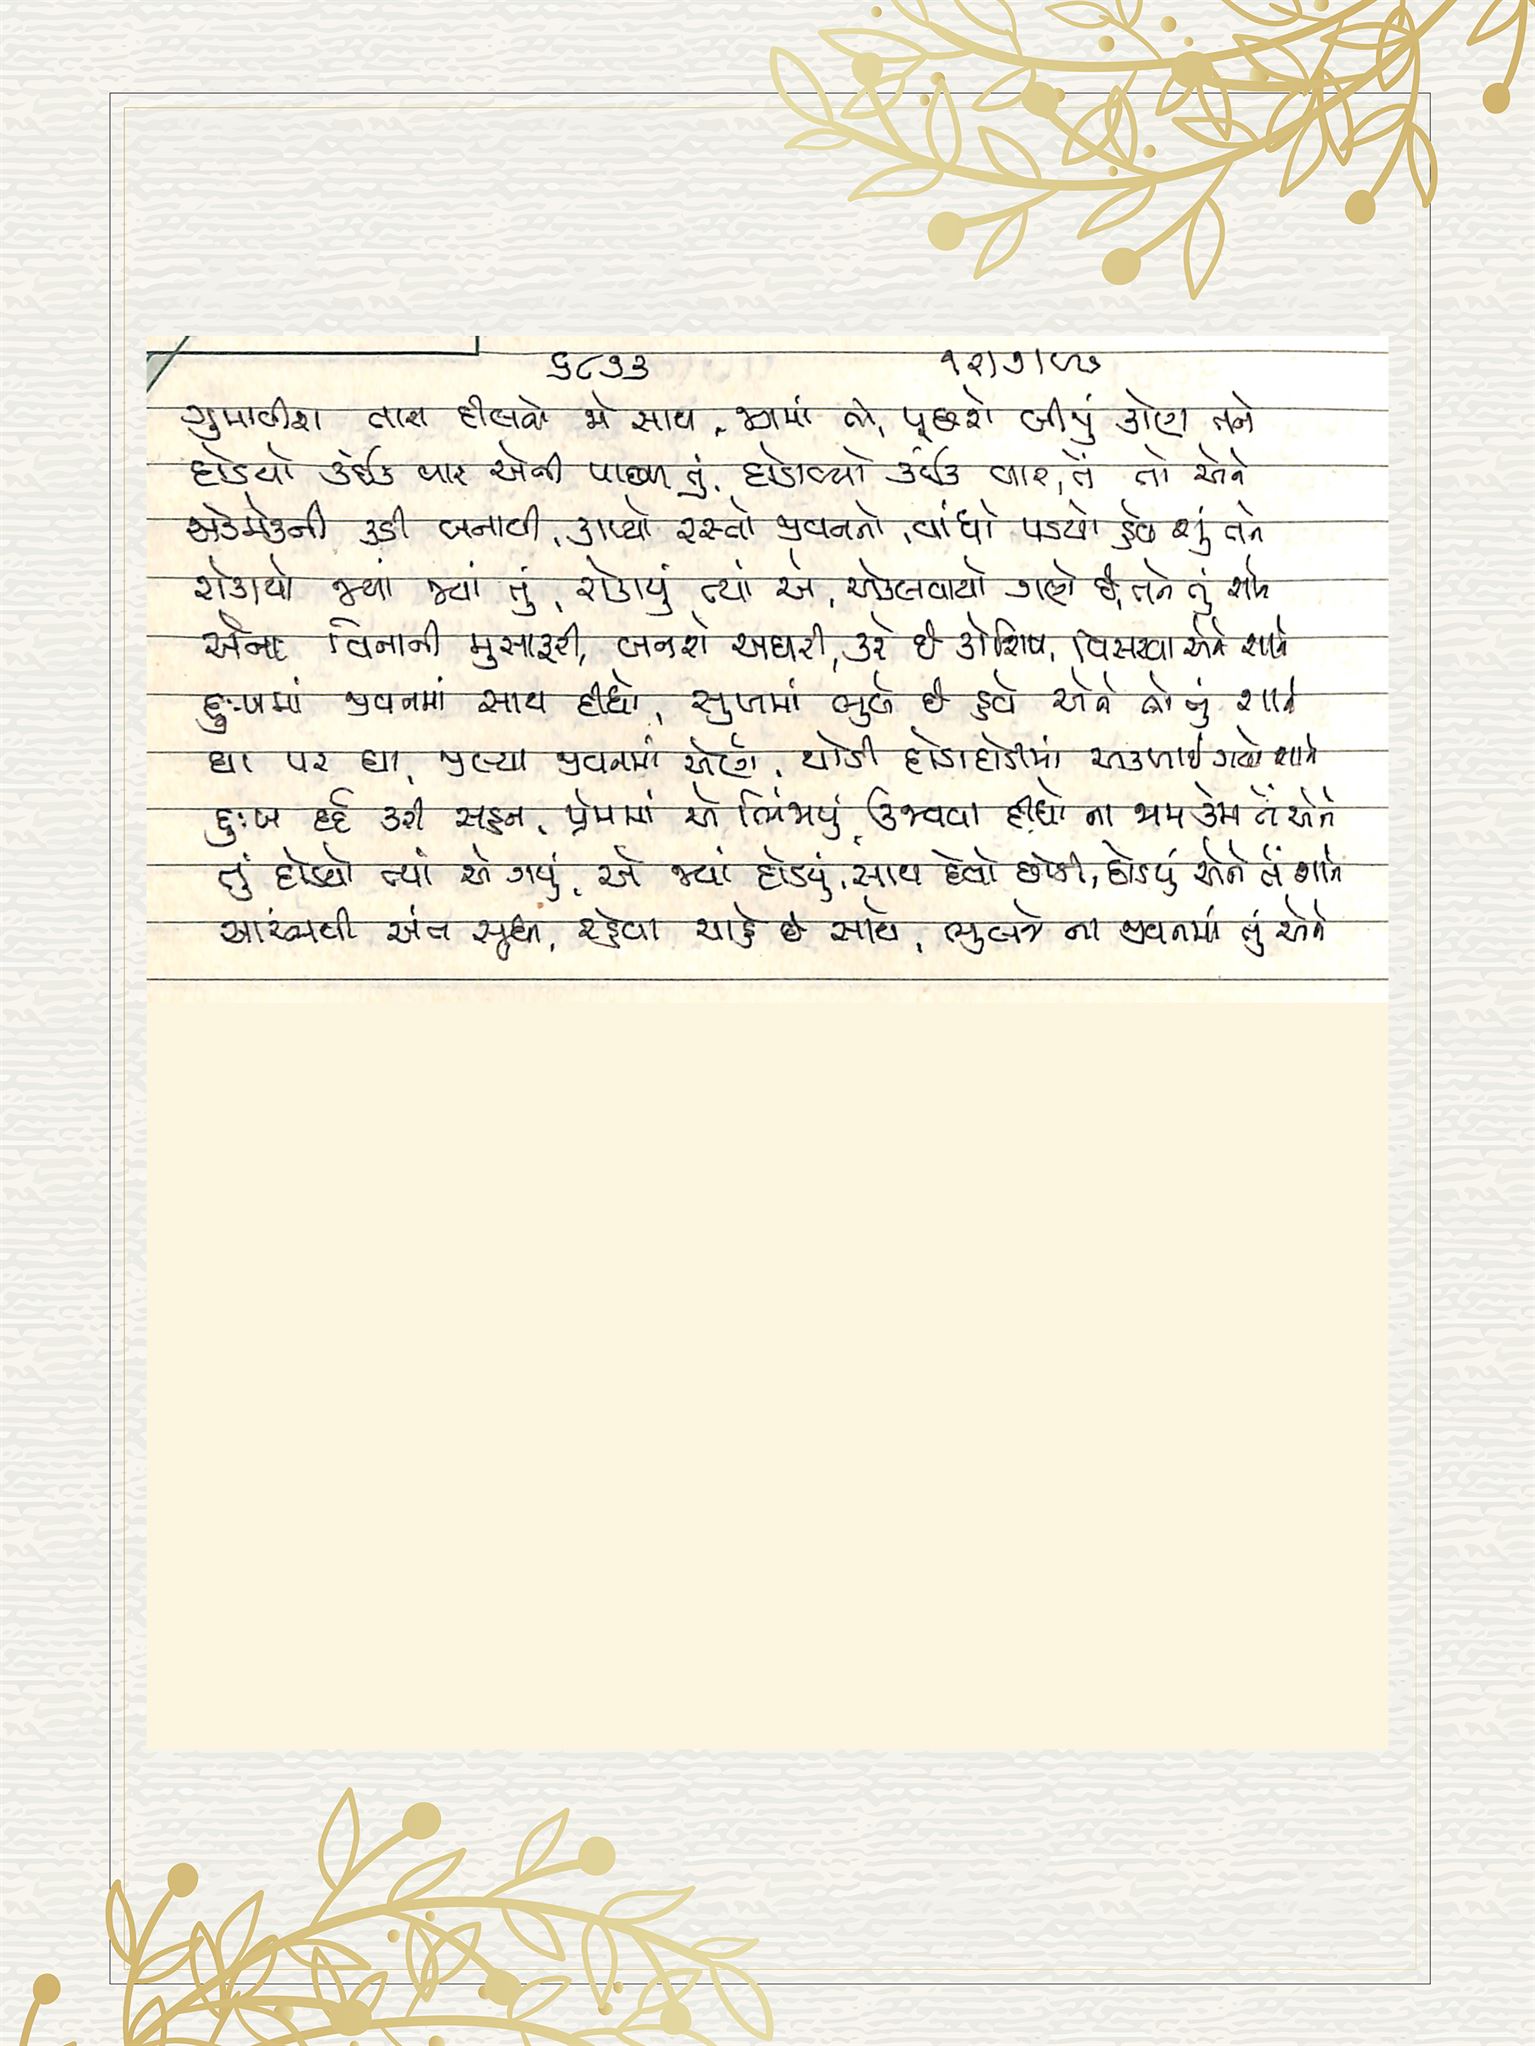 ૬૮૭૩ ૧૨/૭/૯૭
ગુમાવીશ તારા દીલનો જો સાથ, જગમાં તો, પૂછશે બીજું કોણ તને
દોડયો કંઈક વાર એની પાછળ તું, દોડાવ્યો કંઈક વાર, તેં તો એને
એકમેકની કડી બનાવી, કાપ્યો રસ્તો જીવનનો, વાંધો પડયો હવે શું તને
રોકાયો જ્યાં જ્યાં તું, રોકાયું ત્યાં એ, એકલવાયો ગણે છે, તને તું શાને
એના વિનાની મુસાફરી, બનશે અઘરી, કરે છે કોશિષ, વિસરવા એને શાને
દુઃખમાં જીવનમાં સાથ દીધો, સુખમાં ભુલે છે હવે એને તો તું શાને
ઘા પર ઘા, ઝીલ્યા જીવનમાં એણે, થોડી દોડાદોડીમાં અકળાઈ ગયો શાને
દુઃખ દર્દ કરી સહન, પ્રેમમાં એ ભિંજાયું, ઉજવવા દીધો ના જામ કેમ તેં એને
તું દોડયો ત્યાં એ ગયું, એ જ્યાં દોડયું, સાથ દેવો છોડી, છોડયું એને તેં શાને
આરંભથી અંત સુધી, રહેવા ચાહે છે સાથે, ભુલજે ના જીવનમાં તું એને